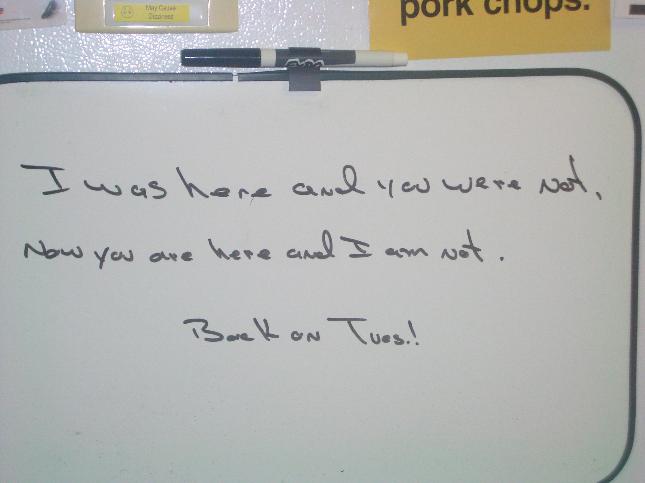 May Cause
Dizziness
pork chops.
I was here and you were not,
Now you are here and I am not.
Back on Tues.!